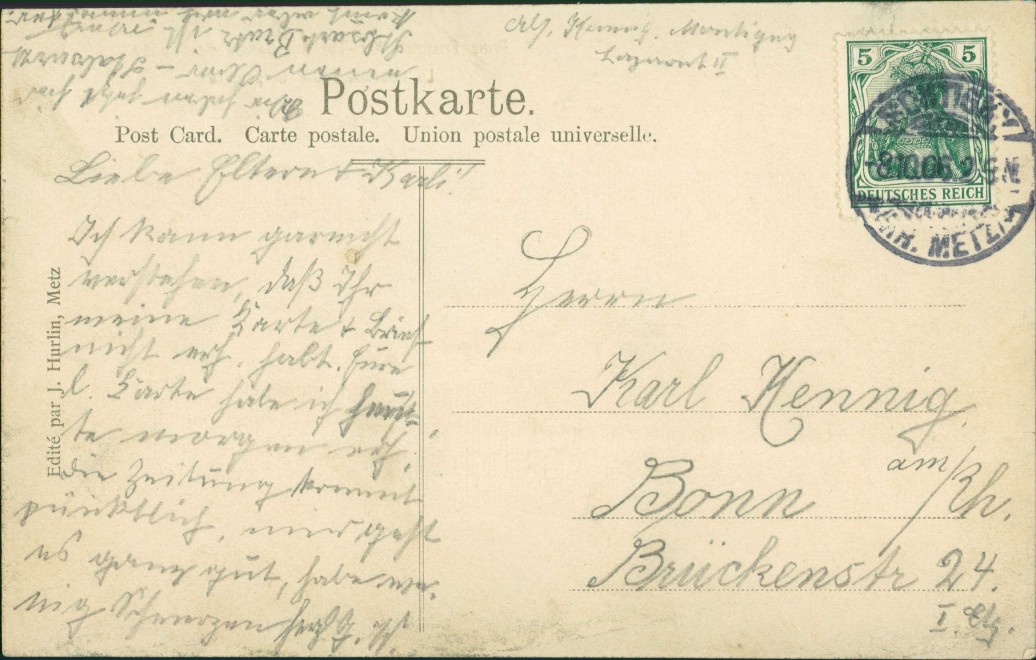 Alf. Hennig. Montigny
Lazarett II
Postkarte.
Post Card. Carte postale. Union postale universelle.
5 5
DEUTSCHES REICH
MONTIGNY
-8.10.06. 2-3N
METZ
Edité par J. Hurlin, Metz
Liebe Eltern & Karli!
Ich kann garnicht
verstehen, daß Ihr
meine Karte & Brief
nicht erh. habt. Eure
l. Karte habe ich heu-
te morgen erh.
Die Zeitung kommt
pünktlich, mir geht
es ganz gut, habe we-
nig Schmerzen
Herrn
Karl Hennig
Bonn am/Rh.
Brückenstr 24.
I. Etg.